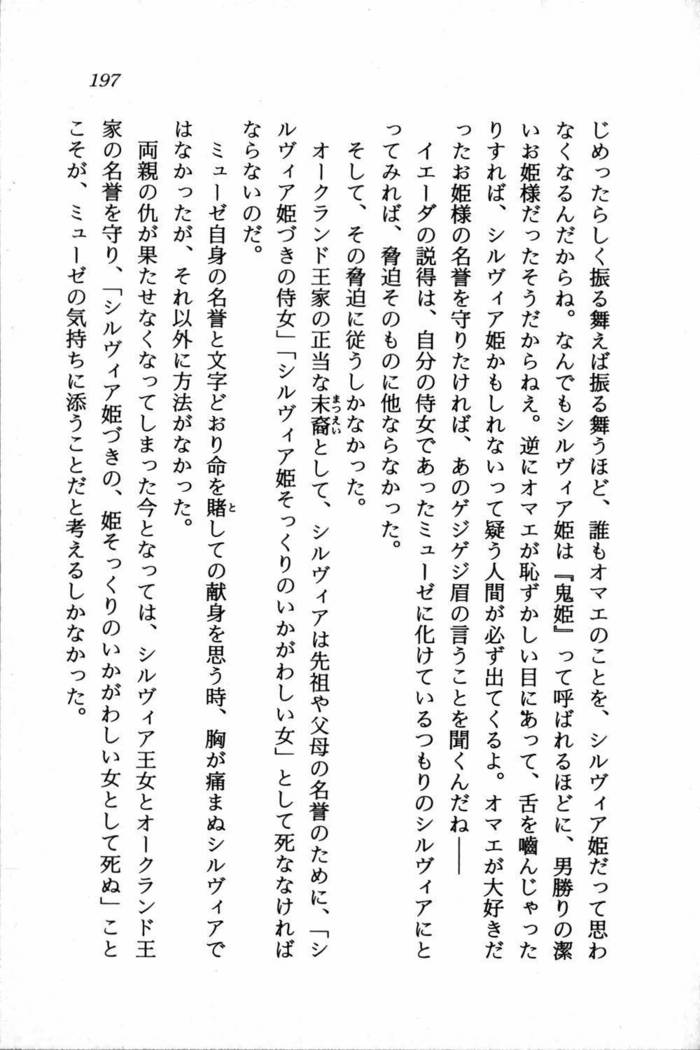 197
じめったらしく振る舞えば振る舞うほど、誰もオマエのことを、シルヴィア姫だって思わ
なくなるんだからね。なんでもシルヴィア姫は『鬼姫』って呼ばれるほどに、男勝りの潔
いお姫様だったそうだからねえ。逆にオマエが恥ずかしい目にあって、舌を嚙んじゃった
りすれば、シルヴィア姫かもしれないって疑う人間が必ず出てくるよ。オマエが大好きだ
ったお姫様の名誉を守りたければ、あのゲジゲジ眉の言うことを聞くんだね――
イエーダの説得は、自分の侍女であったミューゼに化けているつもりのシルヴィアにと
ってみれば、脅迫そのものに他ならなかった。
そして、その脅迫に従うしかなかった。
オークランド王家の正当な末裔として、シルヴィアは先祖や父母の名誉のために、「シ
ルヴィア姫づきの侍女」「シルヴィア姫そっくりのいかがわしい女」として死ななければ
ならないのだ。
ミューゼ自身の名誉と文字どおり命を賭しての献身を思う時、胸が痛まぬシルヴィアで
はなかったが、それ以外に方法がなかった。
両親の仇が果たせなくなってしまった今となっては、シルヴィア王女とオークランド王
家の名誉を守り、「シルヴィア姫づきの、姫そっくりのいかがわしい女として死ぬ」こと
こそが、ミューゼの気持ちに添うことだと考えるしかなかった。